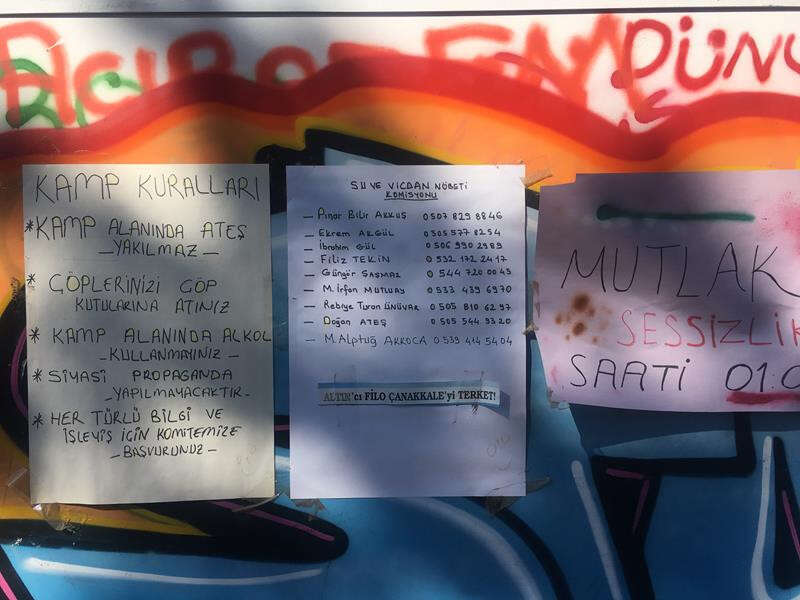 DÜNY
KAMP KURALLARI
* KAMP ALANINDA ATEŞ
_YAKILMAZ_
* ÇÖPLERİNİZİ ÇÖP
KUTULARINA ATINIZ
* KAMP ALANINDA ALKOL
_KULLANMAYINIZ_
* SİYASİ PROPAGANDA
_YAPILMAYACAKTIR_
* HER TÜRLÜ BİLGİ VE
İŞLEYİŞ İÇİN KOMİTEMİZE
_BAŞVURUNUZ_
SU VE VİCDAN NÖBETİ
KOMİSYONU
— Pınar Bilir AKKUŞ 0 507 829 88 46
— Ekrem AKGÜL 0 505 577 82 54
— İbrahim GÜL 0 506 990 2989
— FİLİZ TEKİN 0 532 172 24 17
— Güngör SAŞMAZ 0 544 720 00 43
— M. İrfan MUTLUAY 0 533 439 6970
— Rebiye Turan ÜNÜVAR 0 505 810 62 97
— Doğan ATEŞ 0 505 544 93 20
— M. Alptuğ AKKOCA 0 539 414 54 04
ALTIN'cı FİLO ÇANAKKALE'yi TERKET!
MUTLAK
SESSİZLİK
SAATİ 01.0